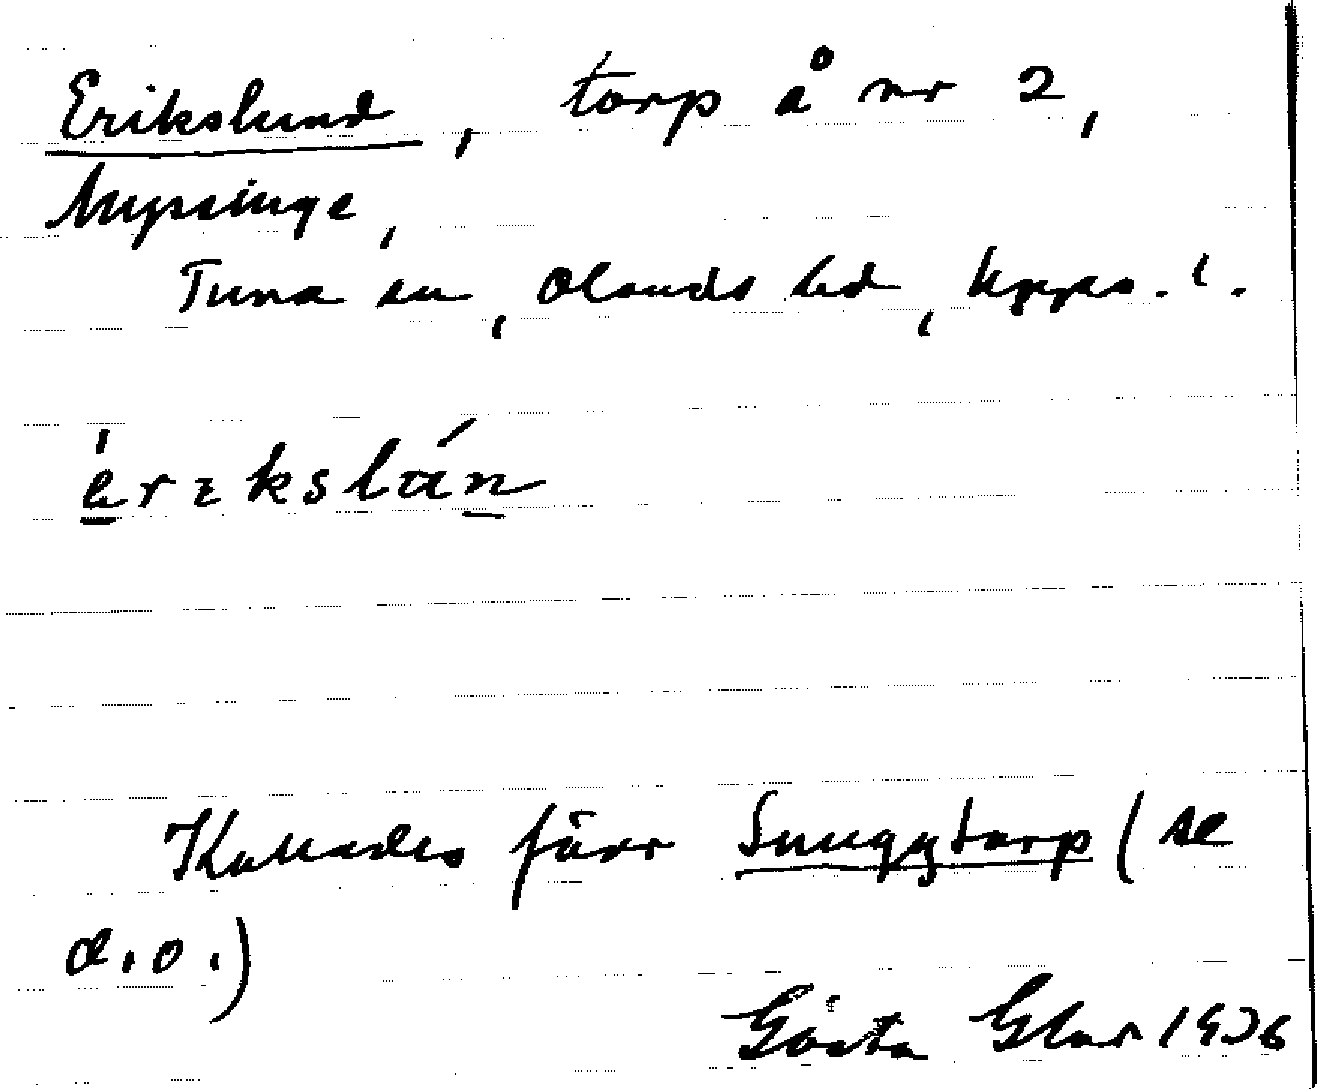 Erikslund, torp å nr 2,
Myrsinge,
Tuna sn, Olands hd, Upps. l.
èrɩkslán
Kallades förr Snuggtorp (se
d.o.)
Gösta Glar 1936